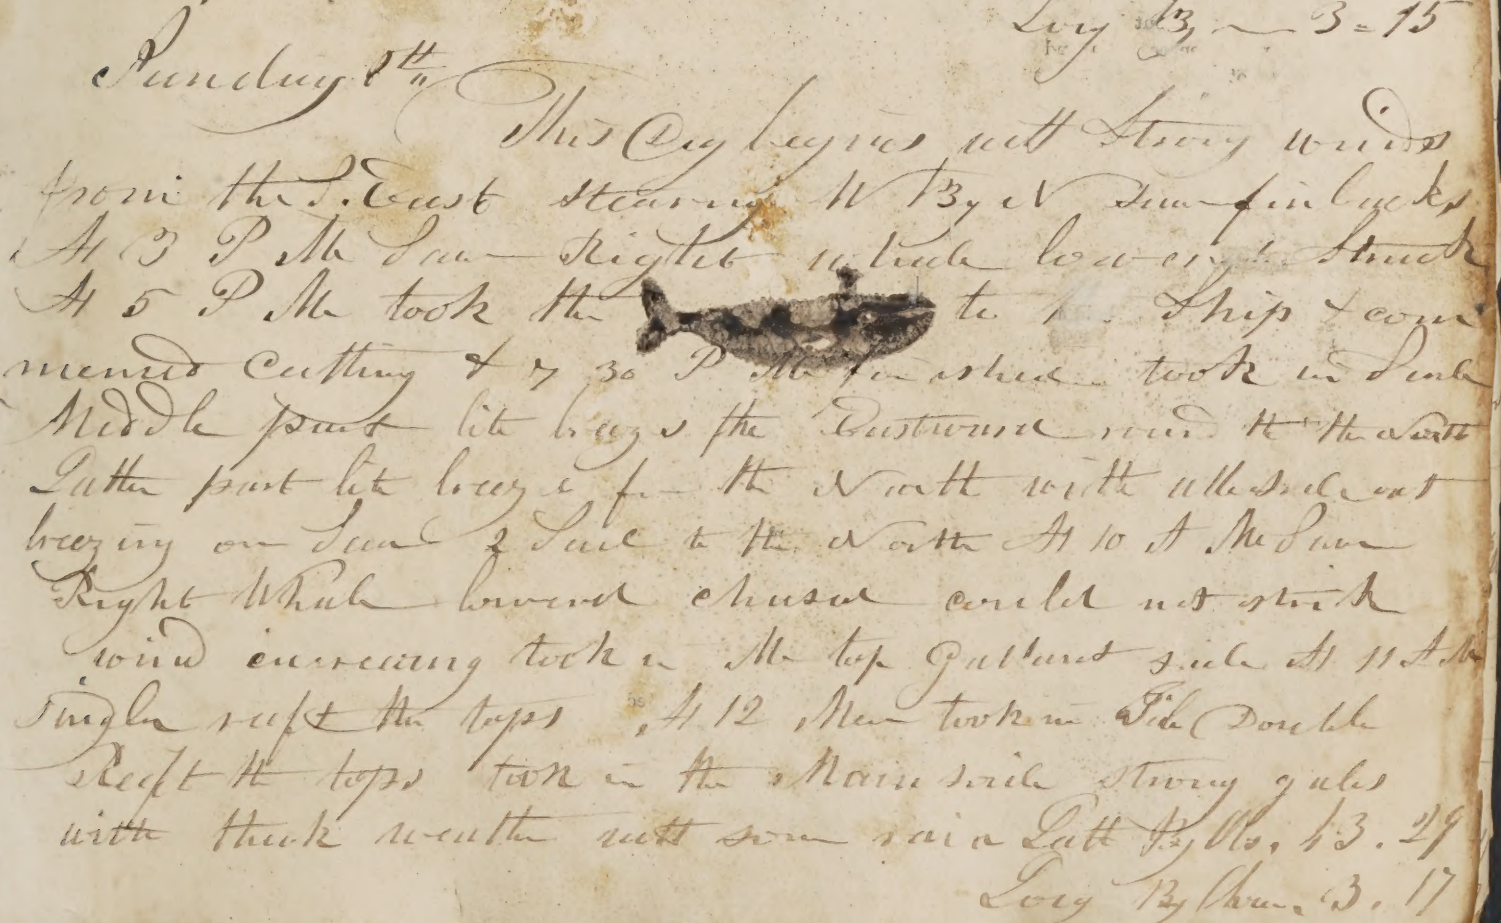 Long By 3 = 15
Sunday 8th
This Day begins with Strong winds
from the S. East stearing W By N Saw finbacks
At 3 P M Saw Right whale lowered Struck
At 5 P M took the to Ship & com
menced Cutting & 7 30 P M finished took in Saile
Middle part lite breezes fr the Eastward round to the North
Latter part lite breezes fr the North with all saile out
breezing on Saw 2 Sail to the North At 10 A M Saw
Right Whale lowered chased could not strik
wind increacing took in Mn top Gallant saile At 11 A M
single reeft the tops At 12 Men took in Double
Reeft the tops took in the Main saile strong gales
with thick weather with som rain Latt By Obs. 43. 29
Long By Chro. 3. 17